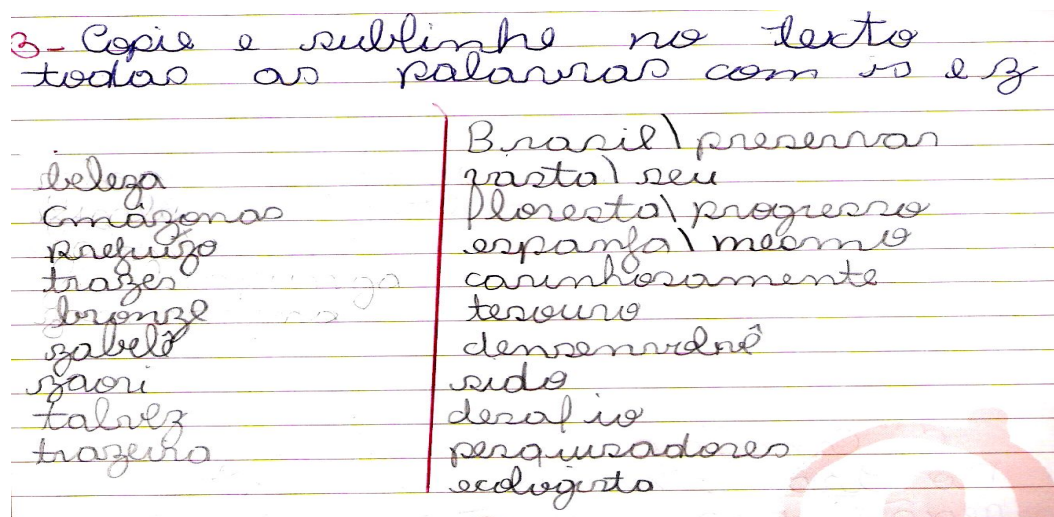 3- Copie e sublinhe no texto
todas as palavras com s e z
beleza
Amazonas
prejuízo
trazer
bronze
zabelê
zaori
talvez
trazeiro
Brasil \ preservar
vasta \ seu
floresta \ progresso
espanja \ mesmo
carinhosamente
tesouro
sido
desafio
pesquisadores
ecologista